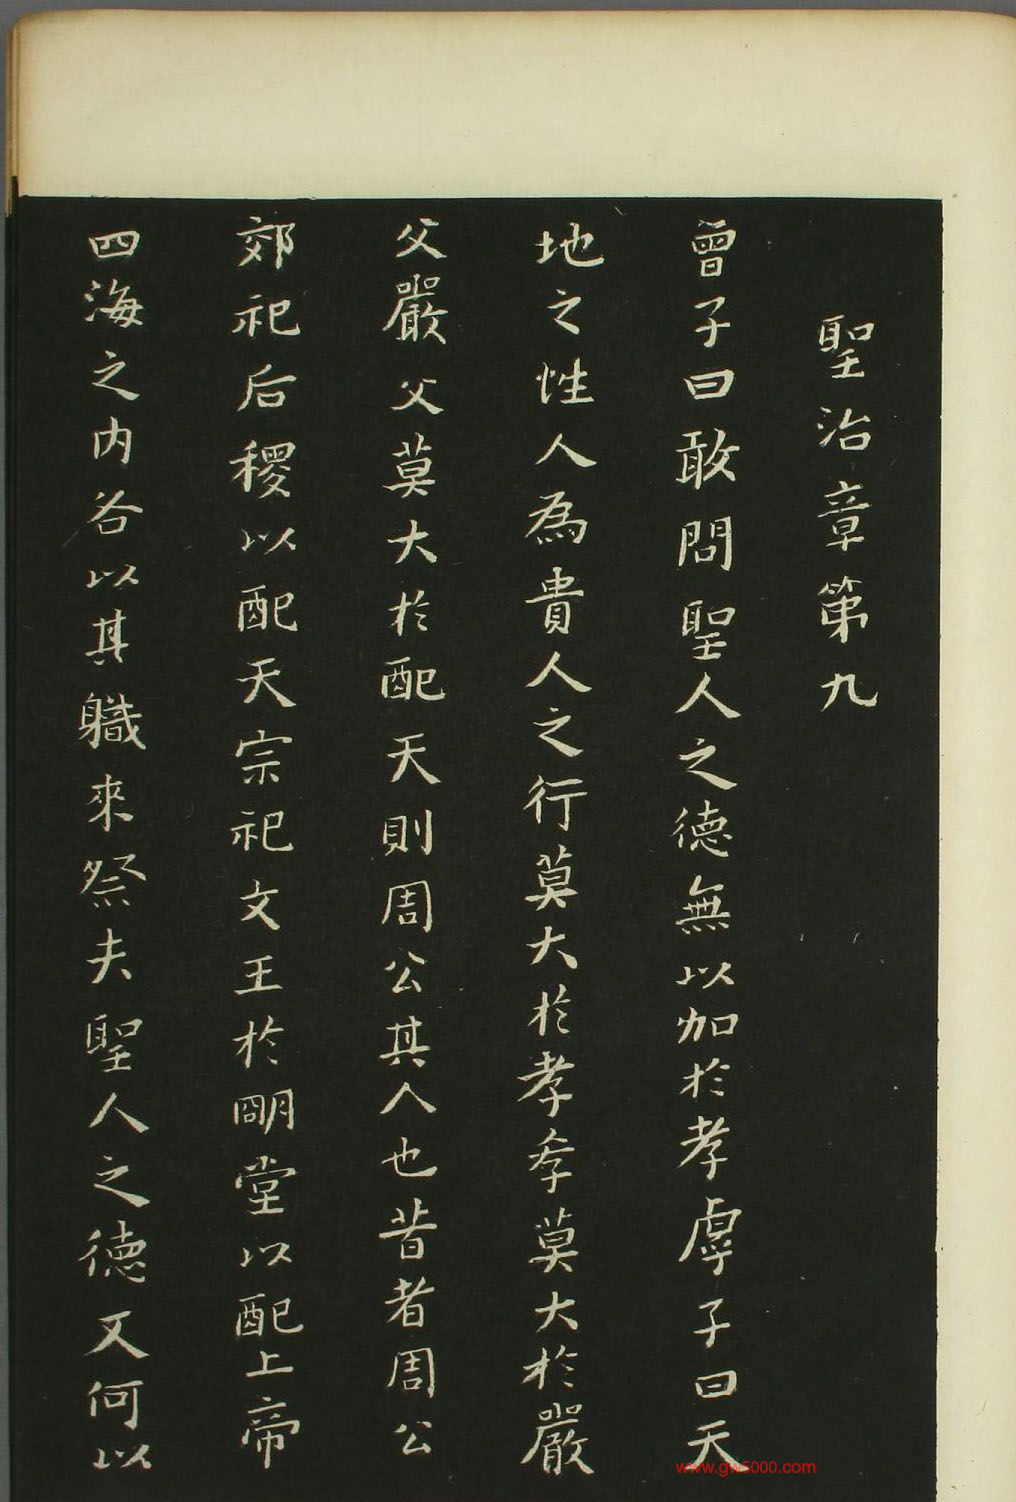 聖治章第九
曾子曰敢問聖人之德無以加於孝虖子曰天
地之性人為貴人之行莫大於孝孝莫大於嚴
父嚴父莫大於配天則周公其人也昔者周公
郊祀后稷以配天宗祀文王於朙堂以配上帝
四海之内各以其職來祭夫聖人之德又何以
www.gw5000.com